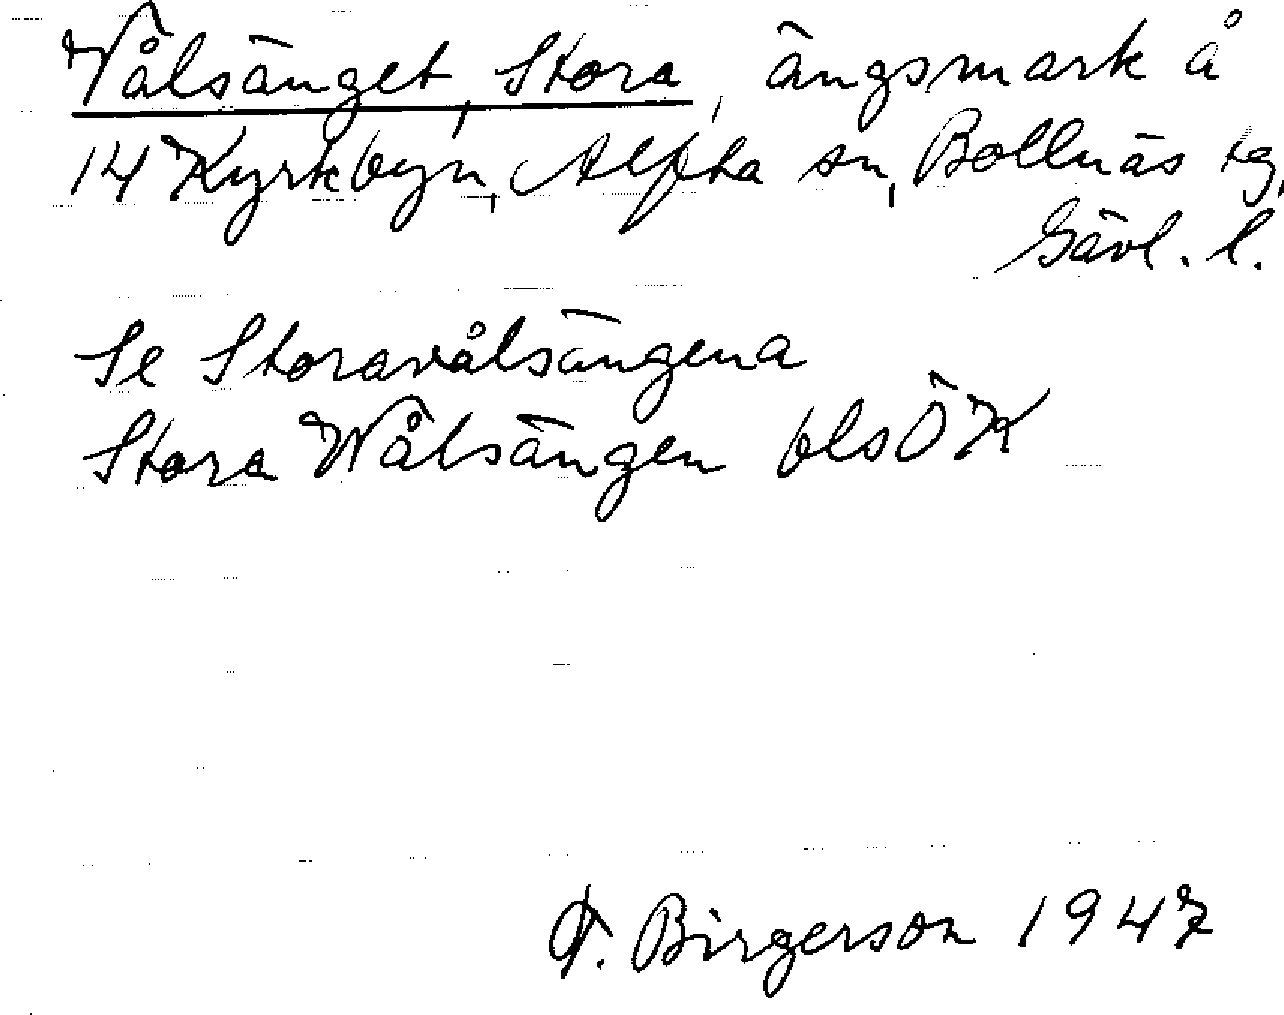 Vålsänget, Stora, ängsmark å
14 Kyrkbyn, Alfta sn, Bollnäs tg,
Gävl. l.
Se Storavålsängena
Stora Wålsängen blsÖK
Birgerson 1947